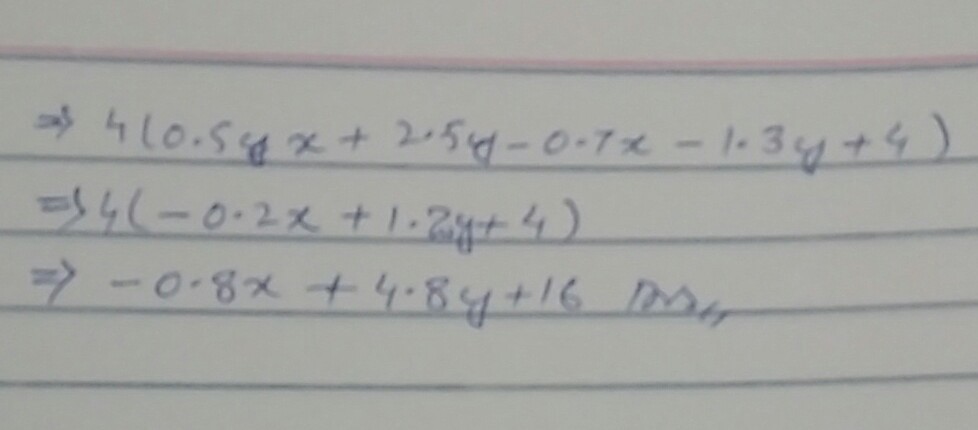 ⇒ 4(0.5 x + 2.5y - 0.7x - 1.3y + 4)
⇒ 4(-0.2x + 1.2y + 4)
⇒ -0.8x + 4.8y + 16 Ans,,